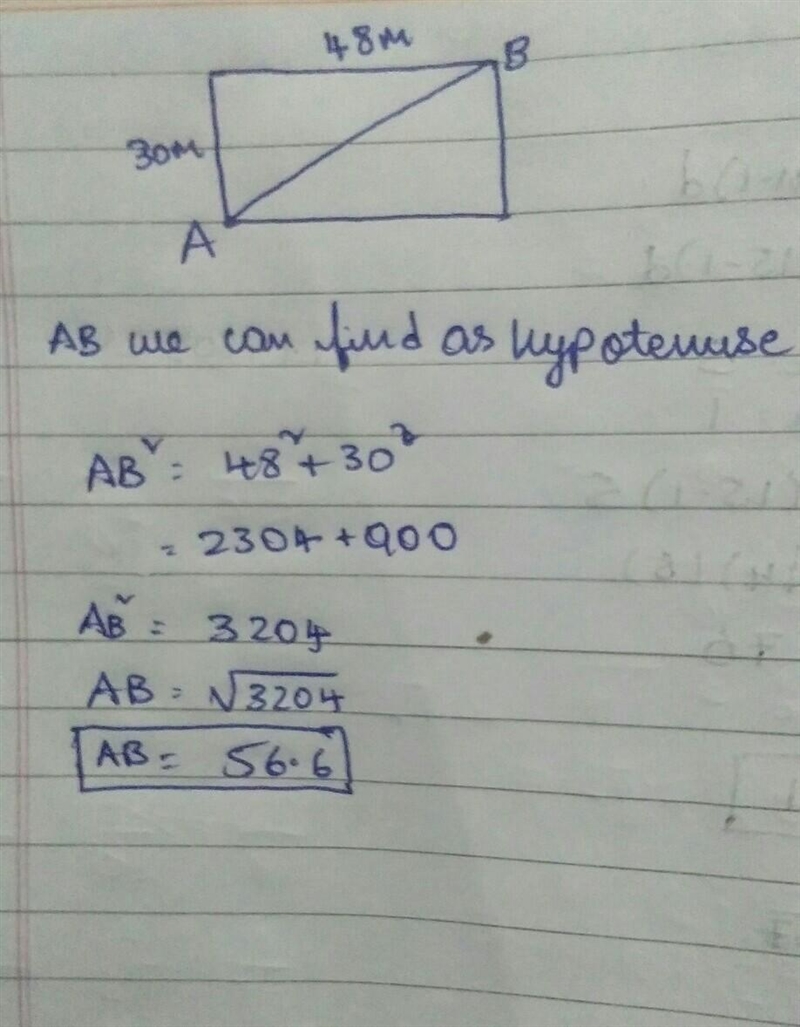 48m
B
30m
A
AB we can find as hypotenuse
AB² = 48² + 30²
= 2304 + 900
AB² = 3204
AB = √3204
AB = 56.6